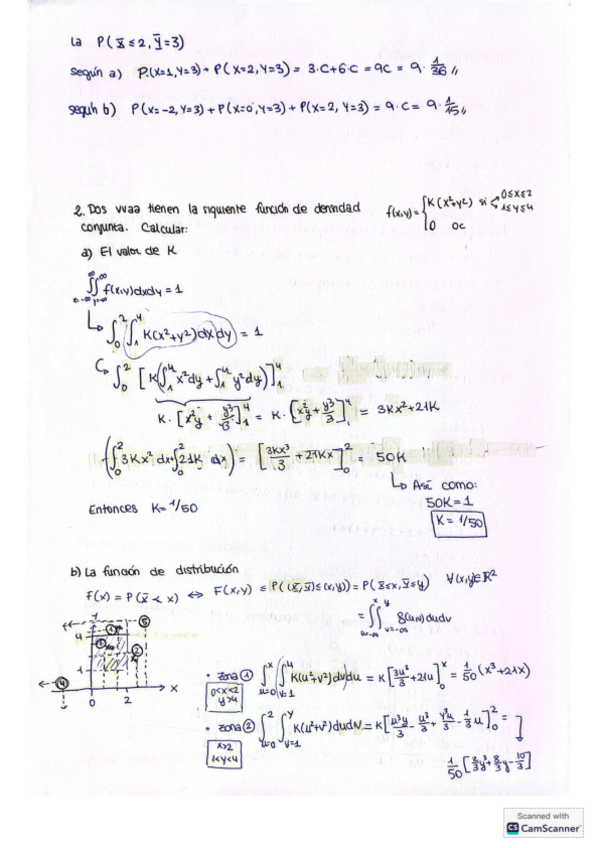 la P(X̄ ≤ 2, Ȳ = 3)
según a) P(X=1, Y=3) + P(X=2, Y=3) = 3·C + 6·C = 9C = 9 · 1/36 //
según b) P(X=-2, Y=3) + P(X=0, Y=3) + P(X=2, Y=3) = 9·C = 9 · 1/15 //
2. Dos vvaa tienen la siguiente función de densidad f(x,y) = { K(x²+y²) si 0≤x≤2 1≤y≤4
conjunta. Calcular: 0 oc
a) El valor de K
∫∫ f(x,y)dxdy = 1
↳ ∫₀² ∫₁⁴ K(x²+y²)dxdy = 1
∫₀² [K(∫₁⁴ x²dy + ∫₁⁴ y²dy)]₁⁴
K · [x²y + y³/3]₁⁴ = K · [x²y + y³/3]₁⁴ = 3Kx² + 21K
(∫₀² 3Kx² dx + ∫₀² 21K dx) = [3Kx³/3 + 21Kx]₀² = 50K
↳ Así como:
Entonces K = 1/50 50K = 1
K = 1/50
b) La función de distribución
F(x) = P(X̄ < x) ⇔ F(x,y) ≤ P((X̄,Ȳ) ≤ (x,y)) = P(X̄ ≤ x, Ȳ ≤ y) ∀(x,y)∈ℝ²
= ∫∫ f(u,v) dudv
u=-∞ v=-∞
4
1
0 2 X
① ② ③ ④ ⑤
• Zona ① ∫ᵤ₌₀ˣ ∫ᵥ₌₁⁴ K(u²+v²)dvdu = K[3u³/3 + 21u]₀ˣ = 1/50 (x³+21x)
0<x<2
y>4
• Zona ② ∫ᵤ₌₀² ∫ᵥ₌₁ʸ K(u²+v²)dudv = K[u³y/3 - u³/3 + y³u/3 - 1/3 u]₀² =
x>2
1<y<4
1/50 [2/3 y³ + 8/3 y - 10/3]
Scanned with
CS CamScanner